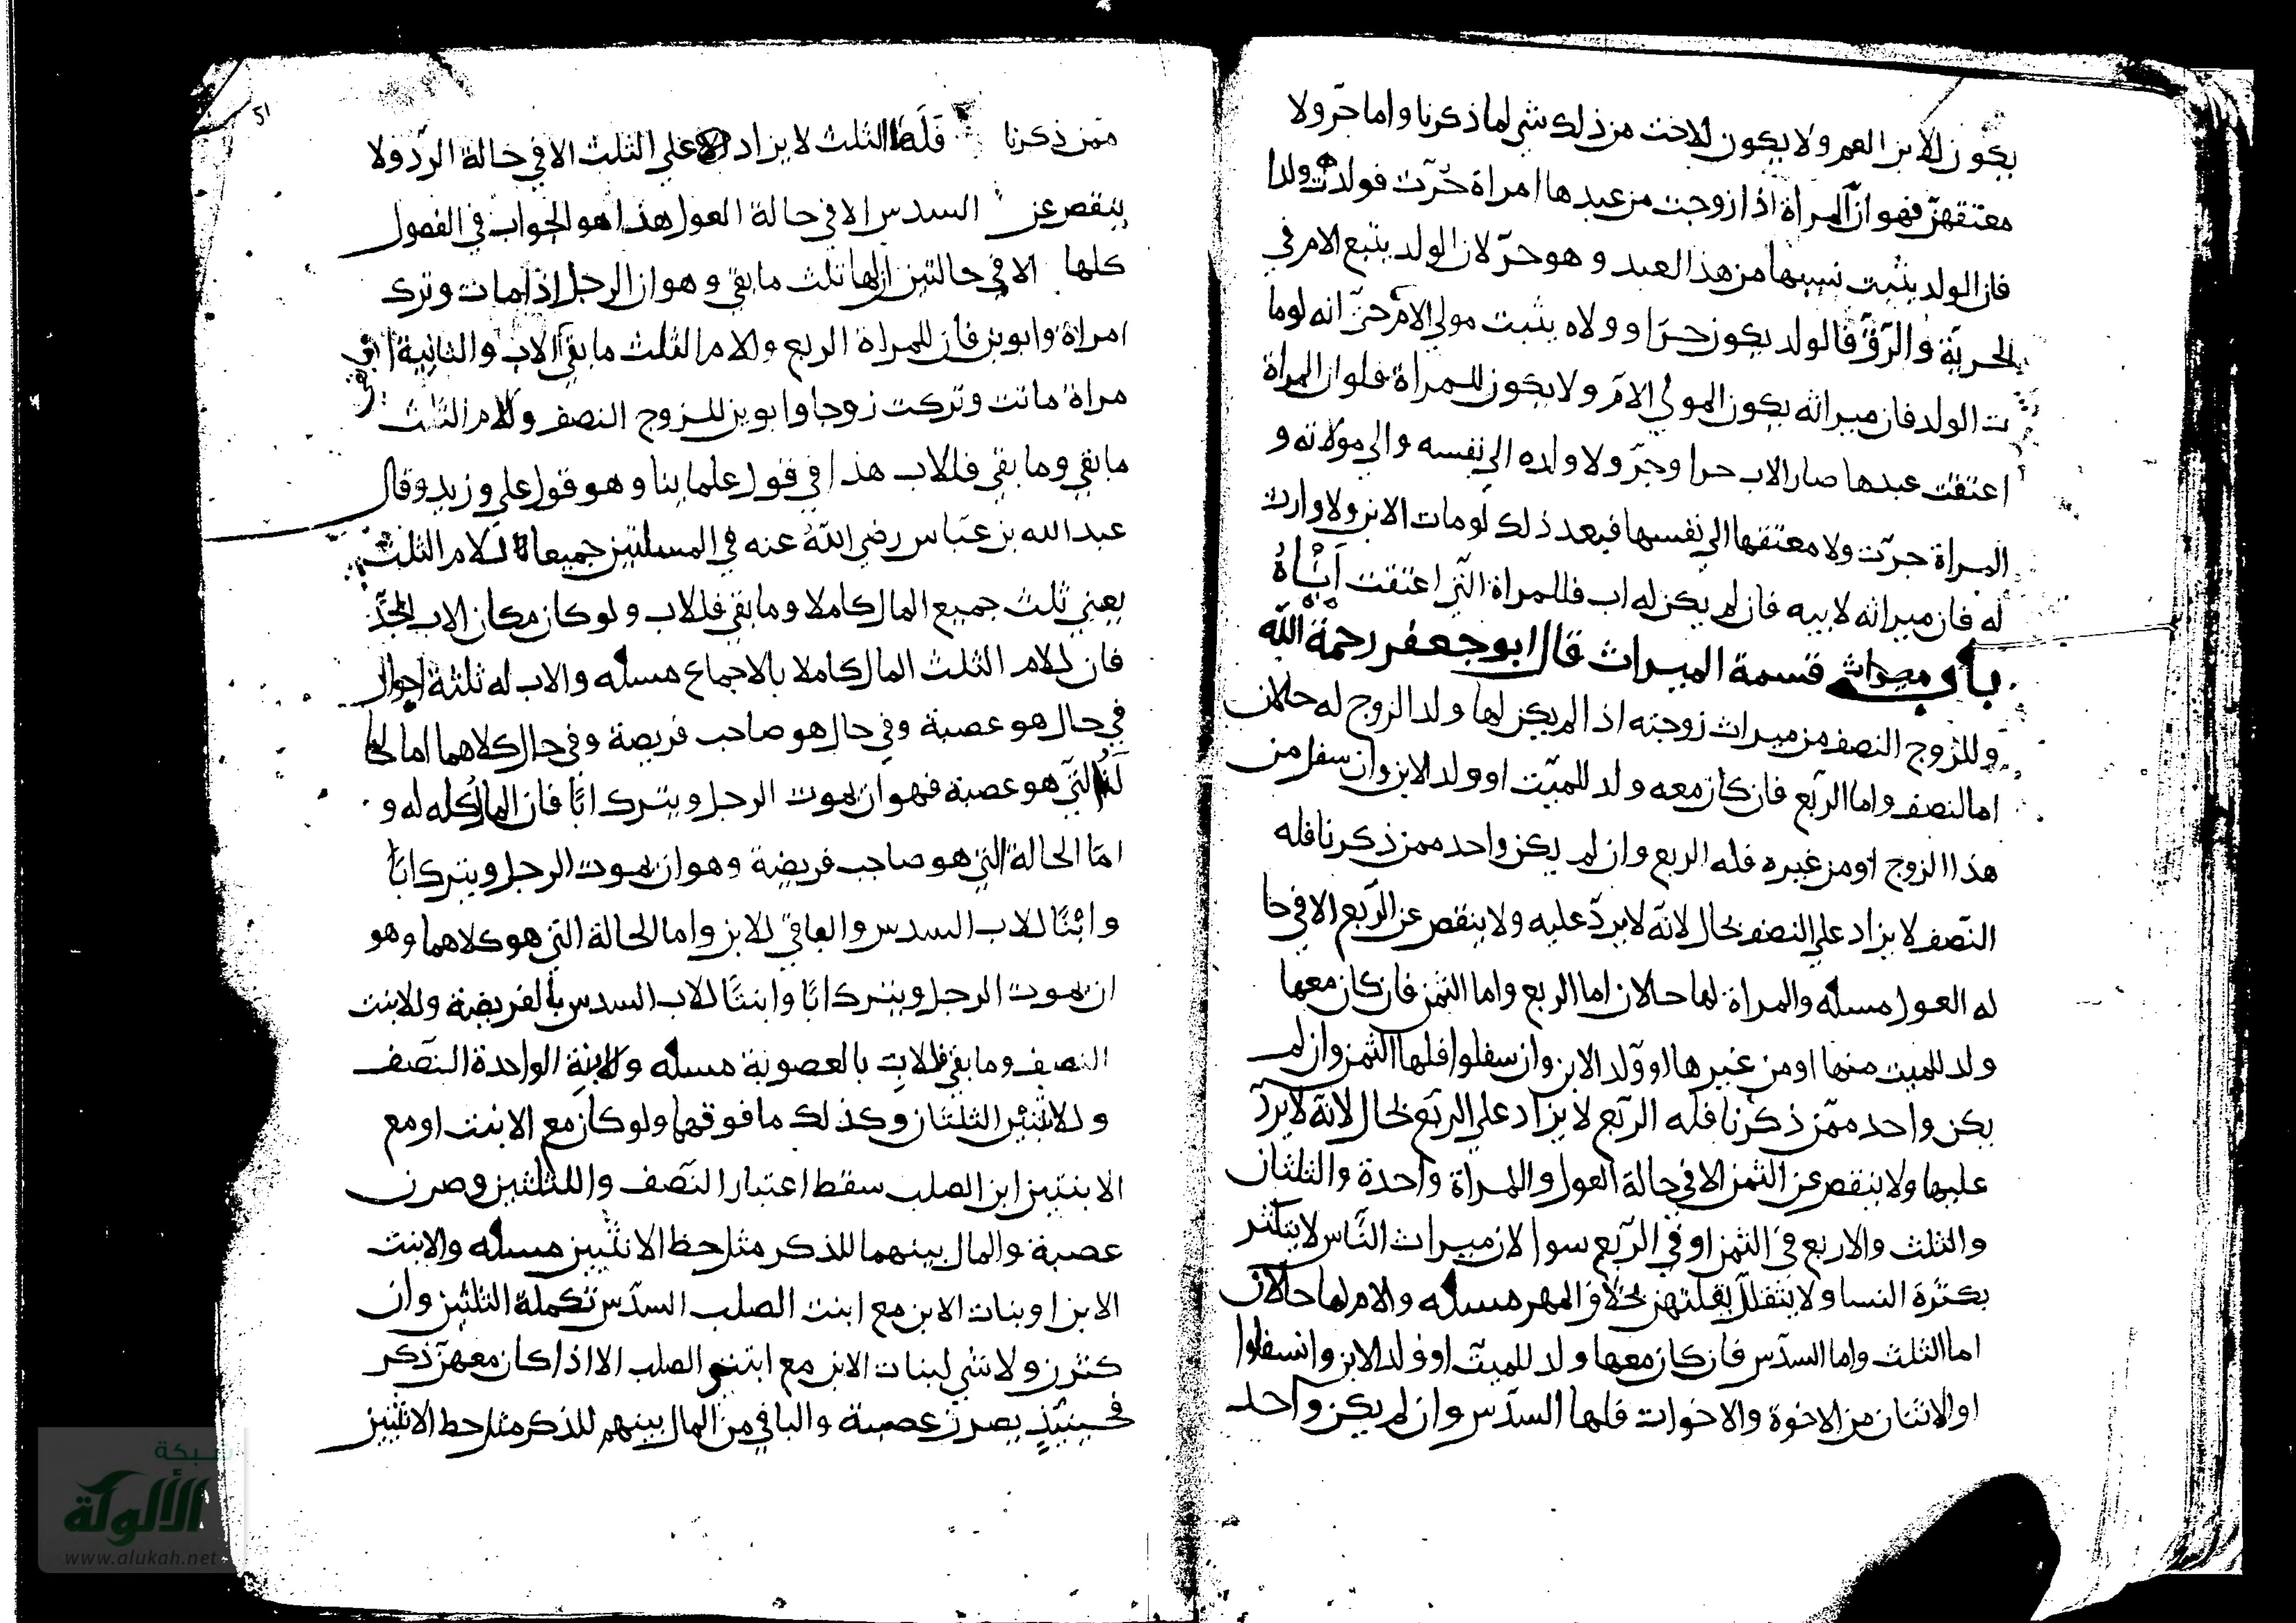 يكون للابن العم ولا يكون للاخت من ذلك شي لما ذكرنا واما جر ولا
معتقهن فهو ان المراة اذا زوجت من عبدها امراة حرت فولدت ولدا
فان الولد يثبت نسبها من هذا العبد وهو حر لان الولد يتبع الام في
الحرية والرق فالولد يكون حرا وولاه يثبت مولي الام حتى انه لو ما
ت الولد فان ميراثه يكون المولي الام ولا يكون للمراة فلو ان المراة
اعتقت عبدها صار الاب حرا وجر ولا ولده الي نفسه والي مولاته و
المراة جرت ولا معتقها الي نفسها فبعد ذلك لو مات الابن ولا وارث
له فان ميراثه لابيه فان لم يكن له اب فللمراة التي اعتقت اباه
باب قسمة الميراث قال ابو جعفر رحمة الله
وللزوج النصف من ميراث زوجته اذا لم يكن لها ولد الزوج له حالان
اما النصف واما الربع فان كان معه ولد للميت او ولد الابن وان سفل من
هذا الزوج او من غيره فله الربع وان لم يكن واحد ممن ذكرنا فله
النصف لا يزاد علي النصف بحال لانه لا يرد عليه ولا ينقص عن الربع الا في حا
له العول مسله والمراة لها حالان اما الربع واما الثمن فان كان معها
ولد للميت منها او من غيرها او ولد الابن وان سفلوا فلها الثمن وان لم
يكن واحد ممن ذكرنا فله الربع لا يزاد علي الربع بحال لانه لا يرد
عليها ولا ينقص عن الثمن الا في حالة العول والمراة واحدة والثلثان
والثلث والاربع في الثمن او في الربع سوا لان ميراث الناس لا يتكثر
بكثرة النسا ولا يتقلل بقلتهن بخلاف المهر مسله والام لها حالان
اما الثلث واما السدس فان كان معها ولد للميت او ولد الابن وان سفلوا
او الاثنان من الاخوة والاخوات فلها السدس وان لم يكن واحد
51
ممن ذكرنا فلها الثلث لا يزاد علي الثلث الا في حالة الرد ولا
ينقص عن السدس الا في حالة العول هذا هو الجواب في الفصول
كلها الا في حالتين ان لها ثلث ما بقي وهو ان الرجل اذا مات وترك
امراة وابوين فان للمراة الربع وللام الثلث ما بقي الاب والثانية
مراة ماتت وتركت زوجا وابوين للزوج النصف وللام الثلث
ما بقي وما بقي فللاب هذا في قول علماينا وهو قول علي وزيد وقال
عبد الله بن عباس رضي الله عنه في المسلتين جميعا للام الثلث
يعني ثلث جميع المال كاملا وما بقي فللاب ولو كان مكان الاب الجد
فان للام الثلث المال كاملا بالاجماع مسله والاب له ثلثة احوال
في حال هو عصبة وفي حال هو صاحب فريضة وفي حال كلاهما اما الحا
له التي هو عصبة فهو ان يموت الرجل ويترك ابا فان المال كله له و
اما الحالة التي هو صاحب فريضة وهو ان يموت الرجل ويترك ابا
وابنا للاب السدس والباقي للابن واما الحالة التي هو كلاهما وهو
ان يموت الرجل ويترك ابا وابنتا للاب السدس بالفريضة وللابنت
النصف وما بقي فللاب بالعصوبة مسله وللابنة الواحدة النصف
وللاثنين الثلثان وكذلك ما فوقهما ولو كان مع الابنت او مع
الابنتين ابن الصلب سقط اعتبار النصف والثلثين وصرن
عصبة والمال بينهما للذكر مثل حظ الانثيين مسله والابنت
الابن او بنات الابن مع ابنت الصلب السدس تكملة الثلثين وان
كثرن ولا شي لبنات الابن مع ابنتي الصلب الا اذا كان معهن ذكر
فحينيذ يصرن عصبة والباقي من المال بينهم للذكر مثل حظ الانثيين
شبكة
الألوكة
www.alukah.net